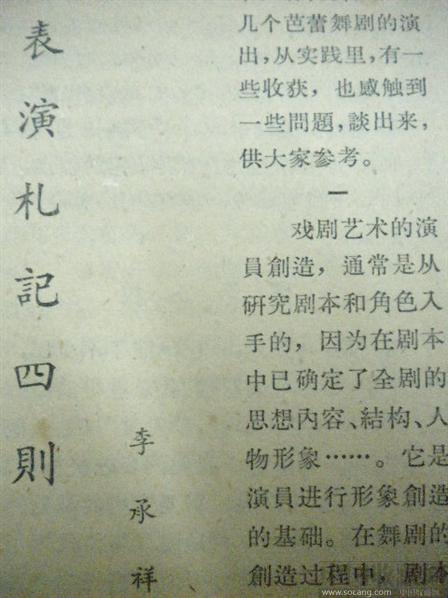 表演札記四則
李承祥
几个芭蕾舞剧的演
出，从实践里，有一
些收获，也感触到
一些問題，談出来，
供大家参考。
一
戏剧艺术的演
員創造，通常是从
研究剧本和角色入
手的，因为在剧本
中已确定了全剧的
思想內容、結构、人
物形象……。它是
演員进行形象創造
的基础。在舞剧的
創造过程中，剧本
www.socang.com